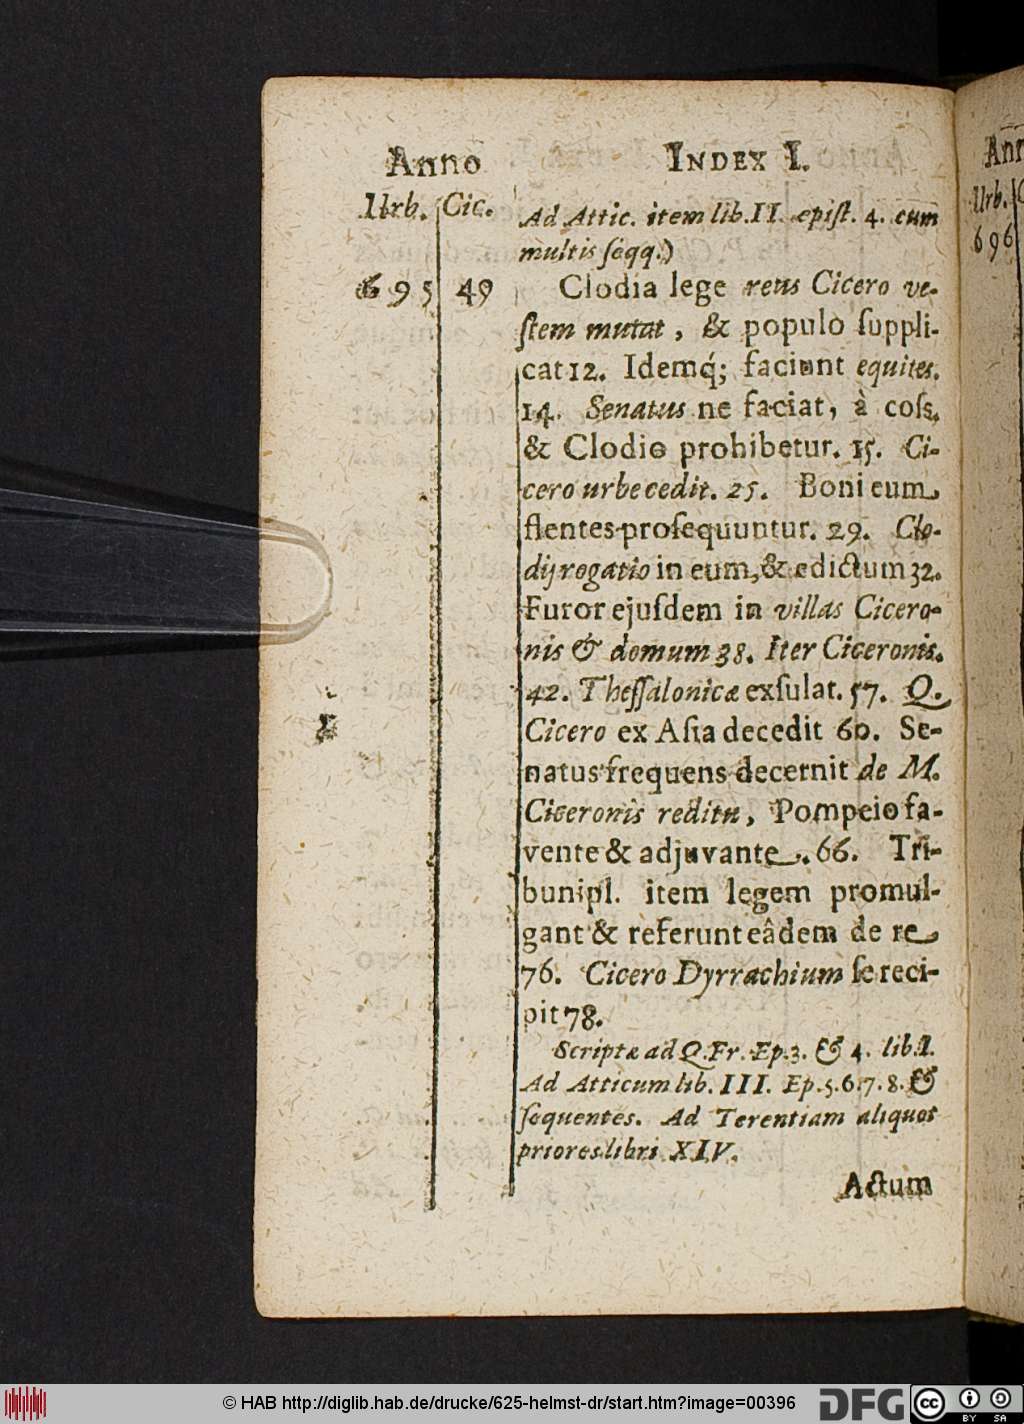 Anno INDEX I.
Urb. Cic. Ad Attic. item lib. II. epiſt. 4. cum
multis ſeqq.)
695 49 Clodia lege reus Cicero ve-
ſtem mutat, & populo ſuppli-
cat 12. Idemq́; faciunt equites.
14. Senatus ne faciat, à coſs.
& Clodio prohibetur. 15. Ci-
cero urbe cedit. 25. Boni eum
flentes proſequuntur. 29. Clo-
dij rogatio in eum, & edictum 32.
Furor ejuſdem in villas Cicero-
nis & domum 38. Iter Ciceronis.
42. Theſſalonicæ exſulat. 57. Q.
Cicero ex Aſia decedit 60. Se-
natus frequens decernit de M.
Ciceronis reditu, Pompeio fa-
vente & adjuvante. 66. Tri-
buni pl. item legem promul-
gant & referunt eâdem de re
76. Cicero Dyrrachium ſe reci-
pit 78.
Scriptæ ad Q. Fr. Ep. 3. & 4. lib. I.
Ad Atticum lib. III. Ep. 5. 6. 7. 8. &
ſequentes. Ad Terentiam aliquot
priores libri XIV.
Actum
Urb.
696
© HAB http://diglib.hab.de/drucke/625-helmst-dr/start.htm?image=00396 DFG cc BY SA